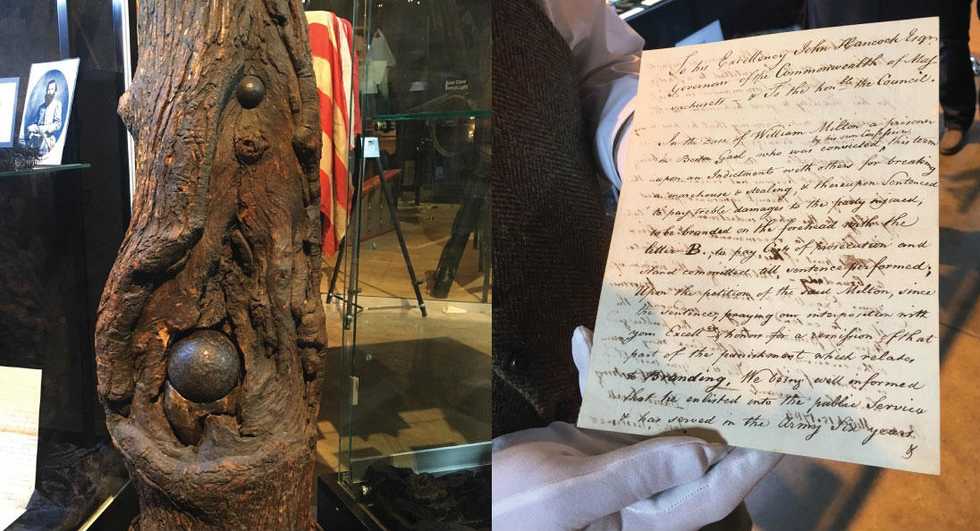 To his Excellency John Hancock Esqr
Governor of the Commonwealth of Mas-
-sachusetts & To the honble the Council.
In the Case of William Milton a prisoner
in Boston Gaol who was convicted, this term
by his own Confession
upon an Indictment with others for breaking
a warehouse & stealing, & thereupon Sentenced
to pay treble damages to the party injured,
to be branded on the forehead with the
letter B, to pay Costs of prosecution and
stand committed till sentence performed;
Upon the petition of the said Milton, since
the sentence, praying our interposition with
your Excelly & honors for a remission of that
part of the punishment which relates
to Branding, We being well informed
that he enlisted into the public Service
& has served in the Army Six years
&